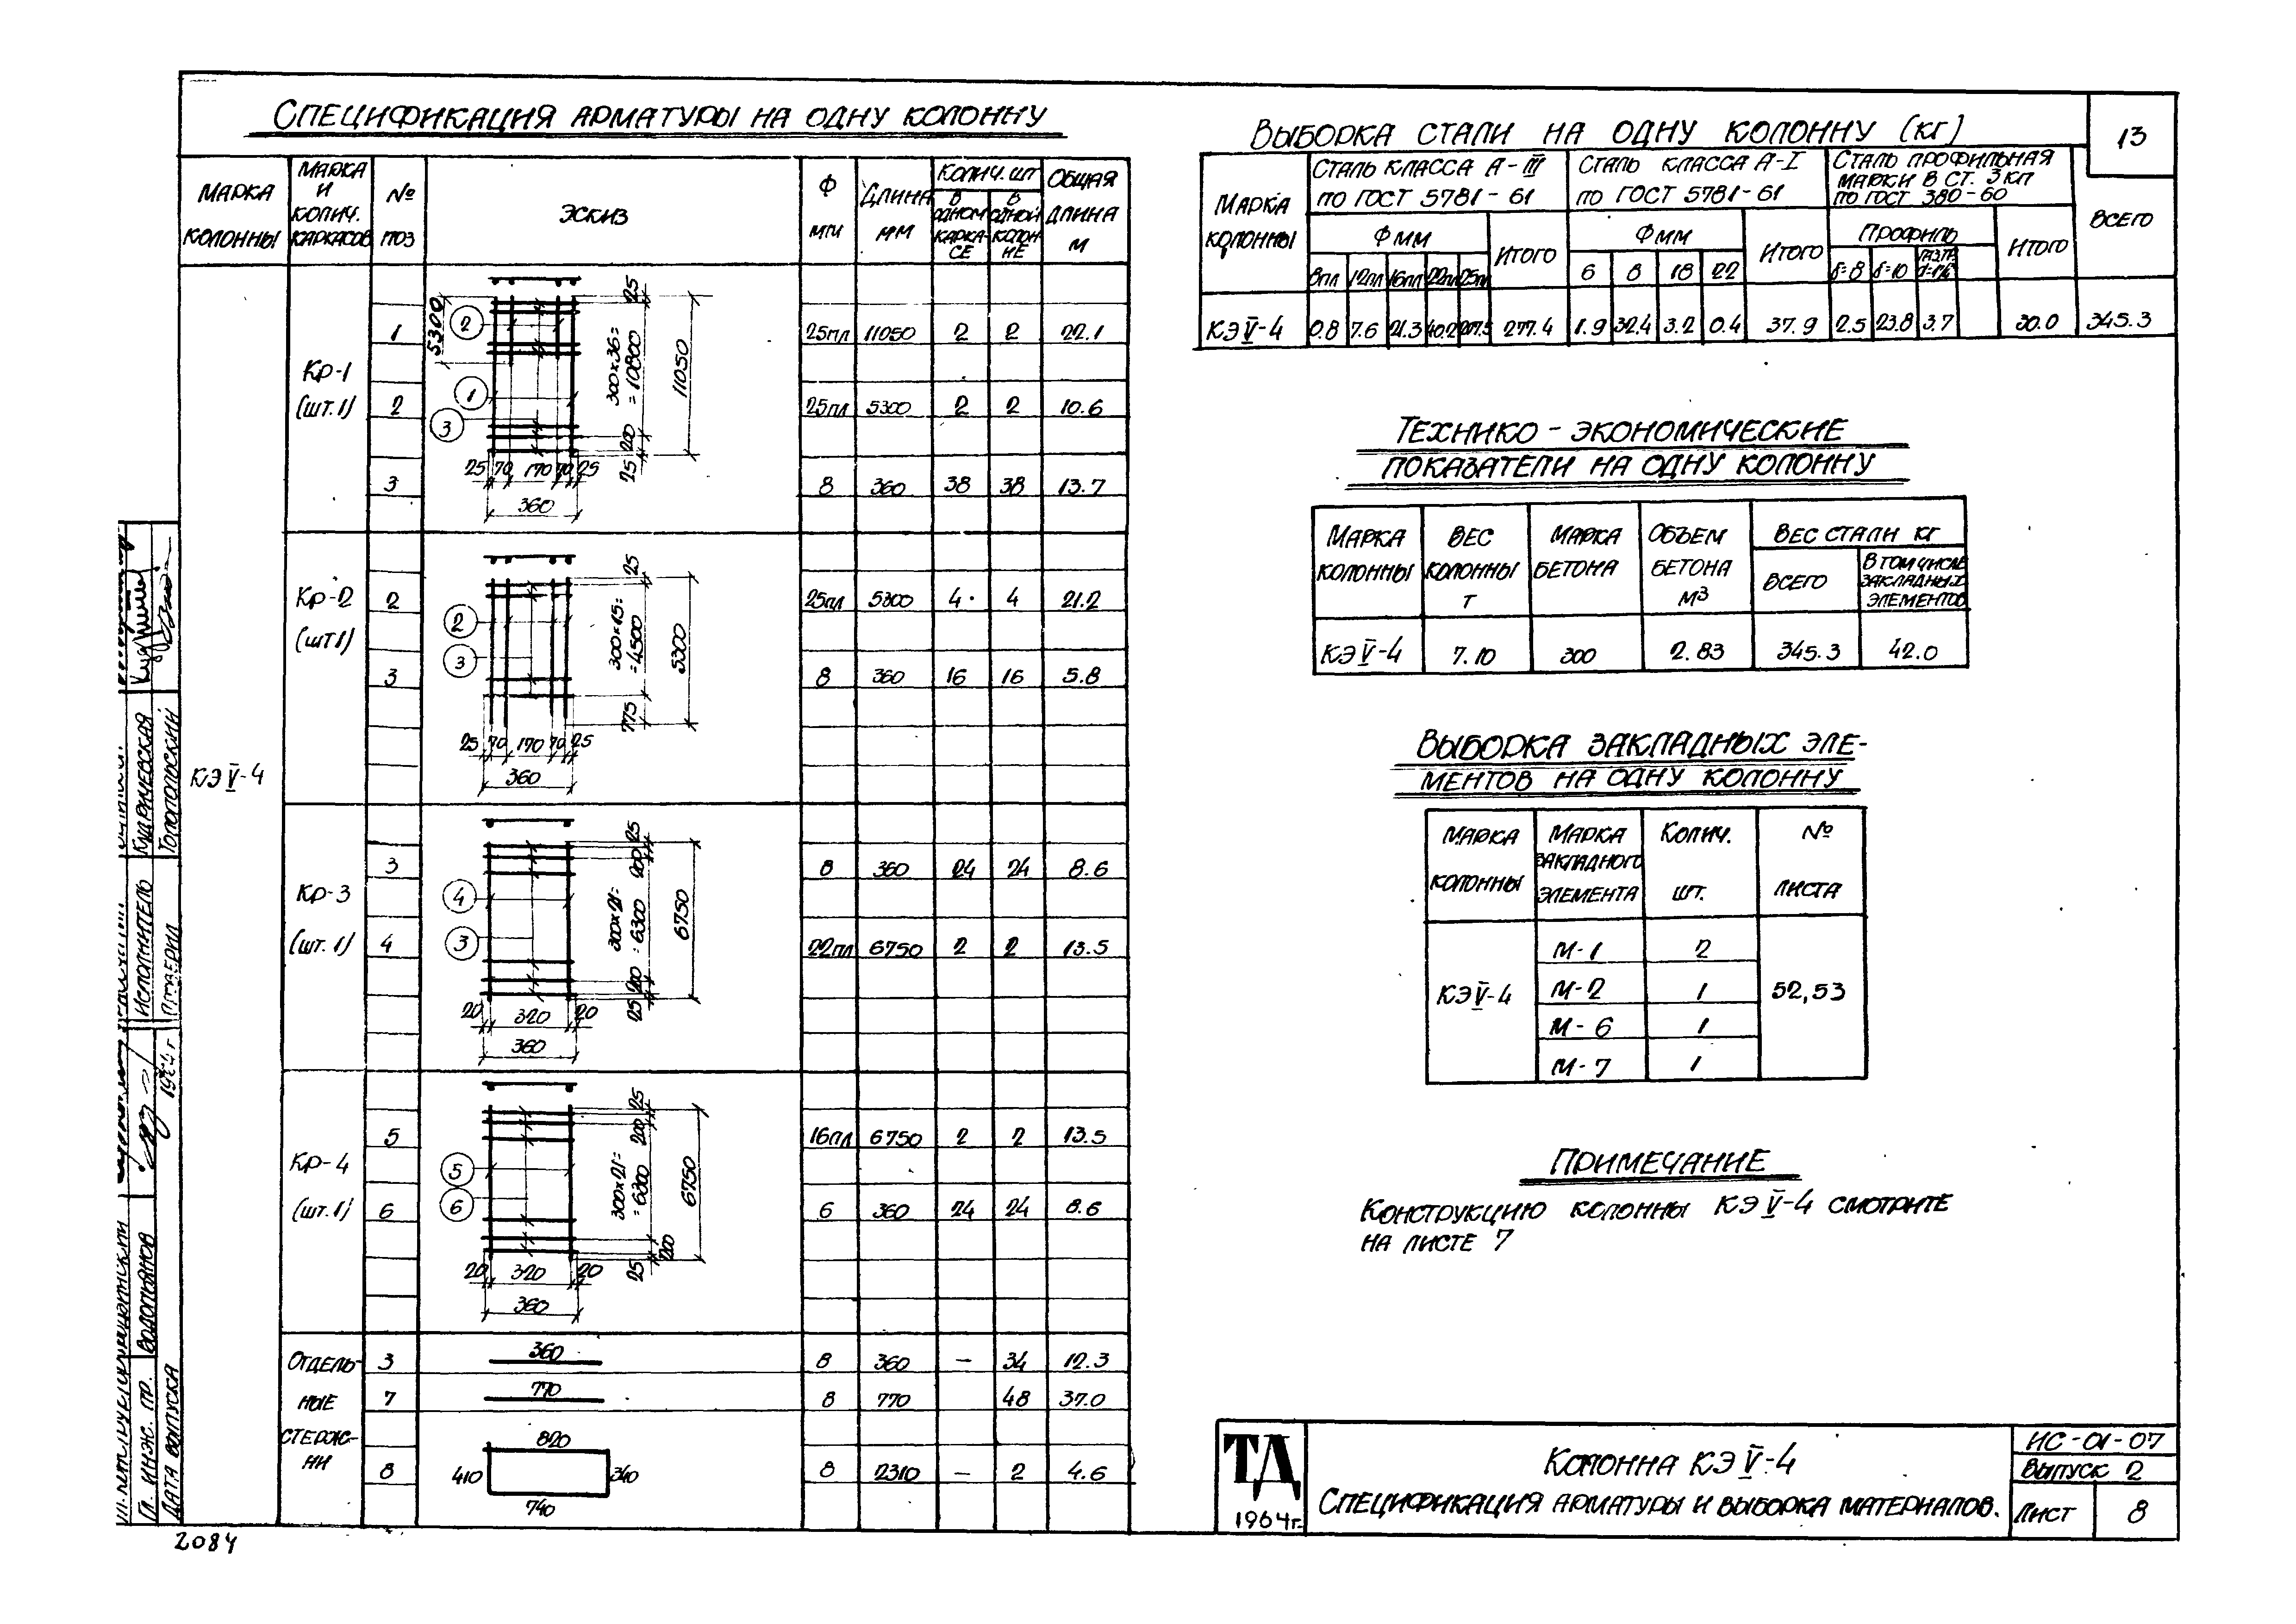 13
Спецификация арматуры на одну колонну
Марка колонны | Марка и колич. каркасов | № поз | Эскиз | Ф мм | Длина мм | Колич. шт | Общая длина м
В одном каркасе | В одной колонне
КЭV-4
Кр-1 (шт. 1)
1 | 25пл | 11050 | 2 | 2 | 22.1
2 | 25пл | 5300 | 2 | 2 | 10.6
3 | 8 | 360 | 38 | 38 | 13.7
5300
2
1
3
25
300х36=
=10800
11050
200
25
25 70 170 70 25
360
Кр-2 (шт 1)
2 | 25пл | 5300 | 4 | 4 | 21.2
3 | 8 | 360 | 16 | 16 | 5.8
2
3
25
300х15=
=4500
5300
775
25 70 170 70 25
360
Кр-3 (шт. 1)
3 | 8 | 360 | 24 | 24 | 8.6
4 | 22пл | 6750 | 2 | 2 | 13.5
4
3
25
200
300х21=
=6300
6750
200
25
20 320 20
360
Кр-4 (шт. 1)
5 | 16пл | 6750 | 2 | 2 | 13.5
6 | 6 | 360 | 24 | 24 | 8.6
5
6
25
200
300х21=
=6300
6750
200
25
20 320 20
360
Отдельные стержни
3 | 360 | 8 | 360 | — | 34 | 12.3
7 | 770 | 8 | 770 | 48 | 37.0
8 | 8 | 2310 | — | 2 | 4.6
820
410
340
740
Выборка стали на одну колонну (кг)
Марка колонны | Сталь класса А-III по ГОСТ 5781-61 | Сталь класса А-I по ГОСТ 5781-61 | Сталь профильная марки В Ст. 3 кп по ГОСТ 380-60 | Всего
Ф мм | Итого | Ф мм | Итого | Профиль | Итого
8пл | 12пл | 16пл | 22пл | 25пл | 6 | 8 | 18 | 22 | δ=8 | δ=10
КЭV-4 | 0.8 | 7.6 | 21.3 | 40.2 | 207.5 | 277.4 | 1.9 | 32.4 | 3.2 | 0.4 | 37.9 | 2.5 | 23.8 | 3.7 | 30.0 | 345.3
Технико-экономические
показатели на одну колонну
Марка колонны | Вес колонны т | Марка бетона | Объем бетона м³ | Вес стали кг
Всего | В том числе закладных элементов
КЭV-4 | 7.10 | 300 | 2.83 | 345.3 | 42.0
Выборка закладных эле-
ментов на одну колонну
Марка колонны | Марка закладного элемента | Колич. шт. | № листа
КЭV-4 | 52,53
М-1 | 2
М-2 | 1
М-6 | 1
М-7 | 1
Примечание
Конструкцию колонны КЭV-4 смотрите
на листе 7
ТД
1964г.
Колонна КЭV-4
Спецификация арматуры и выборка материалов.
ИС-01-07
Выпуск 2
Лист 8
Гл. инж. пр. Водопьянов
Дата выпуска 1964г
Исполнитель Кудрячевская
Проверил Топопольский
2084